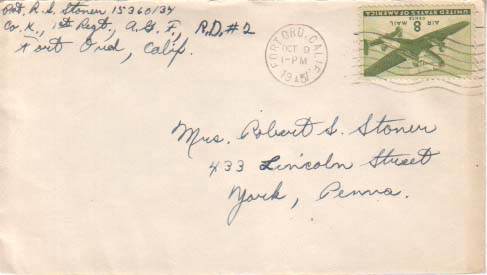 Pvt. R. S. Stoner 15360134
Co. K., 1st Regt., A.G.F., R.D.#2
Fort Ord, Calif.
FORT ORD, CALIF.
OCT 9
1-PM
1945
UNITED STATES OF AMERICA
AIR MAIL
8
CENTS
Mrs. Robert S. Stoner
433 Lincoln Street
York, Penna.